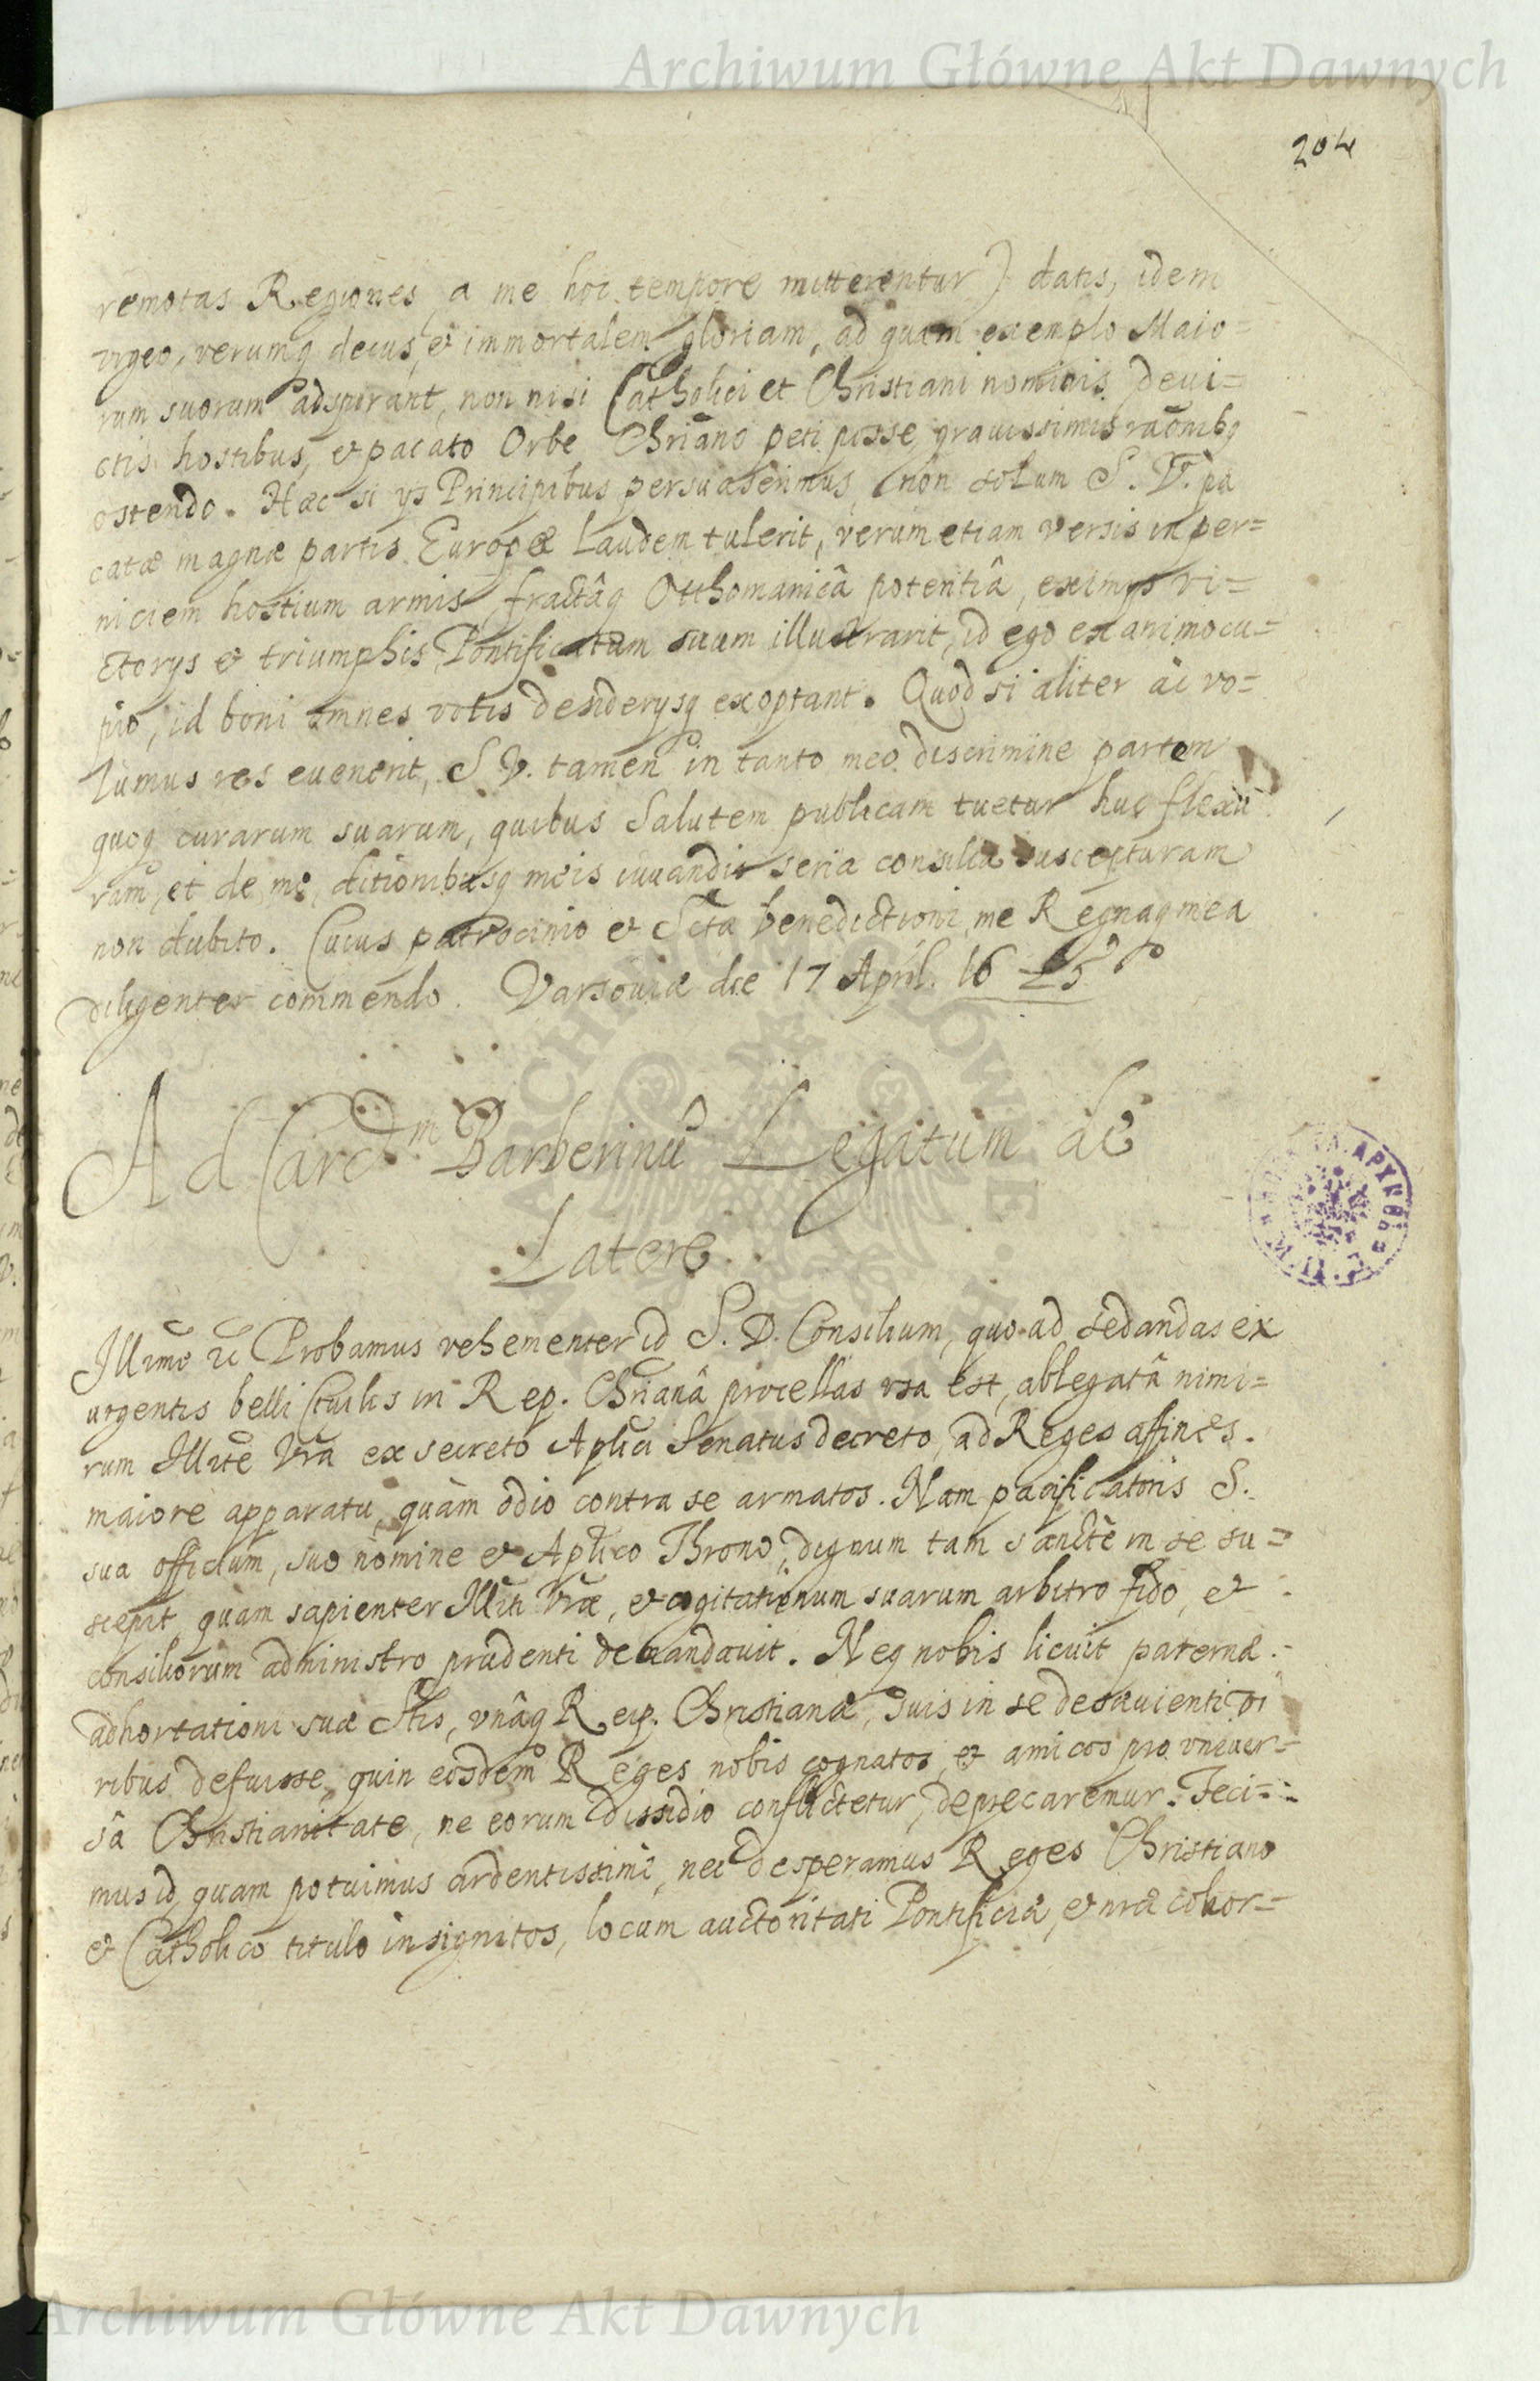 Archiwum Główne Akt Dawnych
204
remotas Regiones, a me hoc tempore mitterentur) datis, idem
vrgeo, verumq decus, et immortalem gloriam, ad quam exemplo Maio=
rum suorum adspirant, non nisi Catholici et Christiani nominis devi=
ctis hostibus, et pacato Orbe Chriano peti posse, grauissimis raõnibq
ostendo. Haec si ijs Principibus persuaserimus, non solum S. V. pa
catae magnae partis Europae Laudem tulerit, verum etiam versis in per=
niciem hostium armis, fractâq Otthomanicâ potentiâ, eximijs vi=
ctorijs et triumphis Pontificatum suum illustrarit, id ego ex animo cu=
pio, id boni omnes votis desiderijsq exoptant. Quod si aliter ac vo=
lumus res euenerit, S V. tamen in tanto meo discrimine partem
quoq curarum suarum, quibus Salutem publicam tuetur huc flexu
ram, et de me, ditionibusq meis iuuandis seria consilia suscepturam
non dubito. Cuius patrocinio et Scta benedictioni me Regnaq mea
diligenter commendo. Varsouiae die 17 April. 16 25
Ad Cardm Barberinũ Legatum de
Latere.
Illmo ec Probamus vehementer id S. D. Consilium, quo ad sedandas ex
urgentis belli Ciuilis in Rep. Chrianâ procellas vsa est, ablegatâ nimi=
rum Illate Vra ex secreto Aplici Senatus decreto, ad Reges affines.
maiore apparatu, quàm odio contra se armatos. Nam pacificatoris S.
sua officium, suo nomine et Aplico Throno, dignum tam sanctè in se su=
scepit, quàm sapienter Illti Vrae, et cogitationum suarum arbitro fido, et
consiliorum administro prudenti demandauit. Neq nobis licuit paternae
adhortationi suae Stis, vnâq Reip. Christianae, suis in se desaeuienti vi
ribus defuisse, quin eosdem Reges nobis cognatos et amicos pro vniuer=
sâ Christianitate, ne eorum dissidio conflictetur, deprecaremur. Feci=
mus id, quam potuimus ardentissimè, nec desperamus Reges Christiano
et Catholico titulo insignitos, locum auctoritati Pontificiae, et nrae cohor=
Archiwum Główne Akt Dawnych